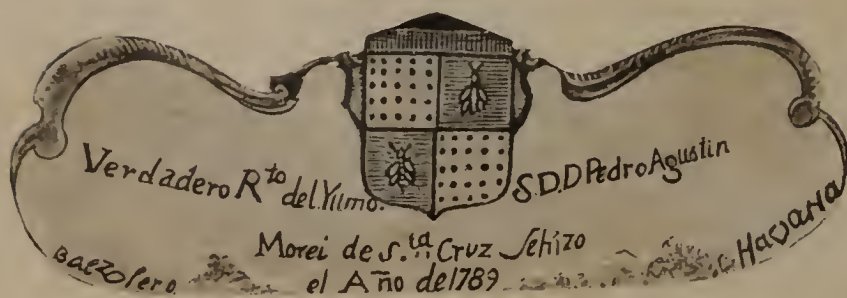 Verdadero R.to del Yllmo. S.D.D Pedro Agustin
Morei de S.ta Cruz Sehizo
el Año de 1789
Baez Havana